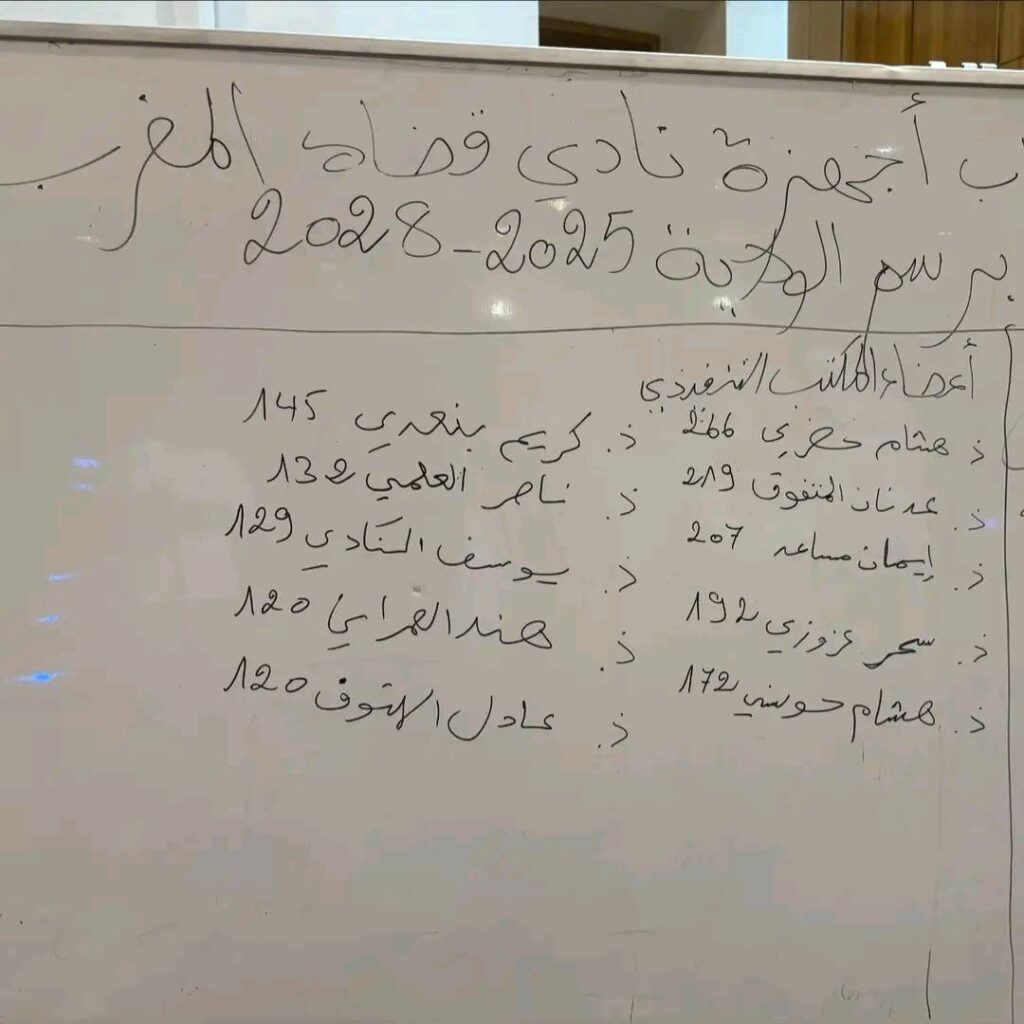 ب أجهزة نادي قضاة المغرب
برسم الولاية 2025-2028
أعضاء المكتب التنفيذي
ذ هشام خضري 266
ذ. عدنان المتفوق 219
ذ. إيمان مساعد 207
ذ. سحر عزوزي 192
ذ. هشام حوسني 172
ذ. كريم بنعدي 145
ذ. ناصر العلمي 132
ذ. يوسف 129
ذ. هند 120
ذ. عادل 120